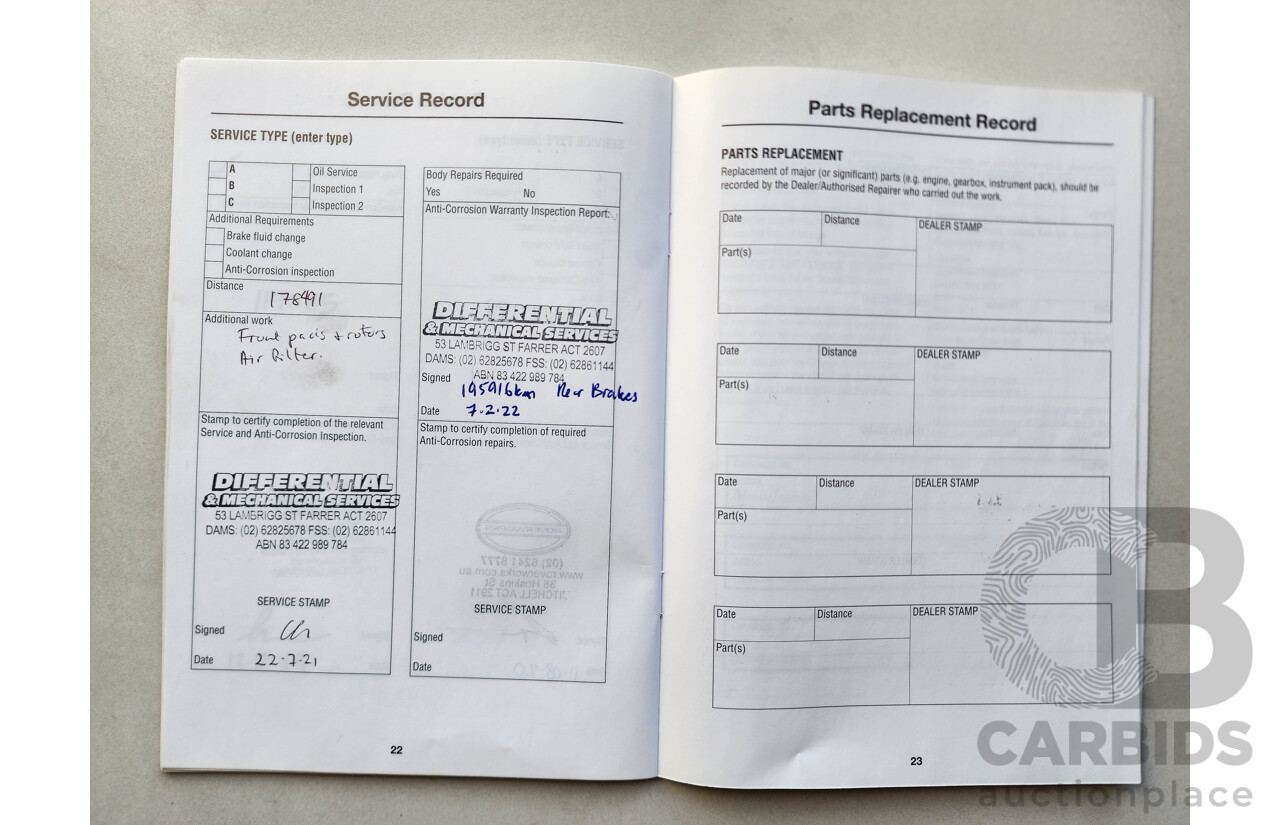 Service Record
SERVICE TYPE (enter type)
A
B
C
Oil Service
Inspection 1
Inspection 2
Additional Requirements
Brake fluid change
Coolant change
Anti-Corrosion inspection
Distance
178491
Additional work
Front pads + rotors
Air filter.
Stamp to certify completion of the relevant
Service and Anti-Corrosion Inspection.
DIFFERENTIAL
& MECHANICAL SERVICES
53 LAMBRIGG ST FARRER ACT 2607
DAMS: (02) 62825678 FSS: (02) 62861144
ABN 83 422 989 784
SERVICE STAMP
Signed
Date 22-7-21
Body Repairs Required
Yes No
Anti-Corrosion Warranty Inspection Report:
DIFFERENTIAL
& MECHANICAL SERVICES
53 LAMBRIGG ST FARRER ACT 2607
DAMS: (02) 62825678 FSS: (02) 62861144
ABN 83 422 989 784
Signed 195916km Rear Brakes
Date 7.2.22
Stamp to certify completion of required
Anti-Corrosion repairs.
SERVICE STAMP
Signed
Date
22
Parts Replacement Record
PARTS REPLACEMENT
Replacement of major (or significant) parts (e.g. engine, gearbox, instrument pack), should be
recorded by the Dealer/Authorised Repairer who carried out the work.
Date Distance DEALER STAMP
Part(s)
Date Distance DEALER STAMP
Part(s)
Date Distance DEALER STAMP
Part(s)
Date Distance DEALER STAMP
Part(s)
23
CARBIDS
auctionplace